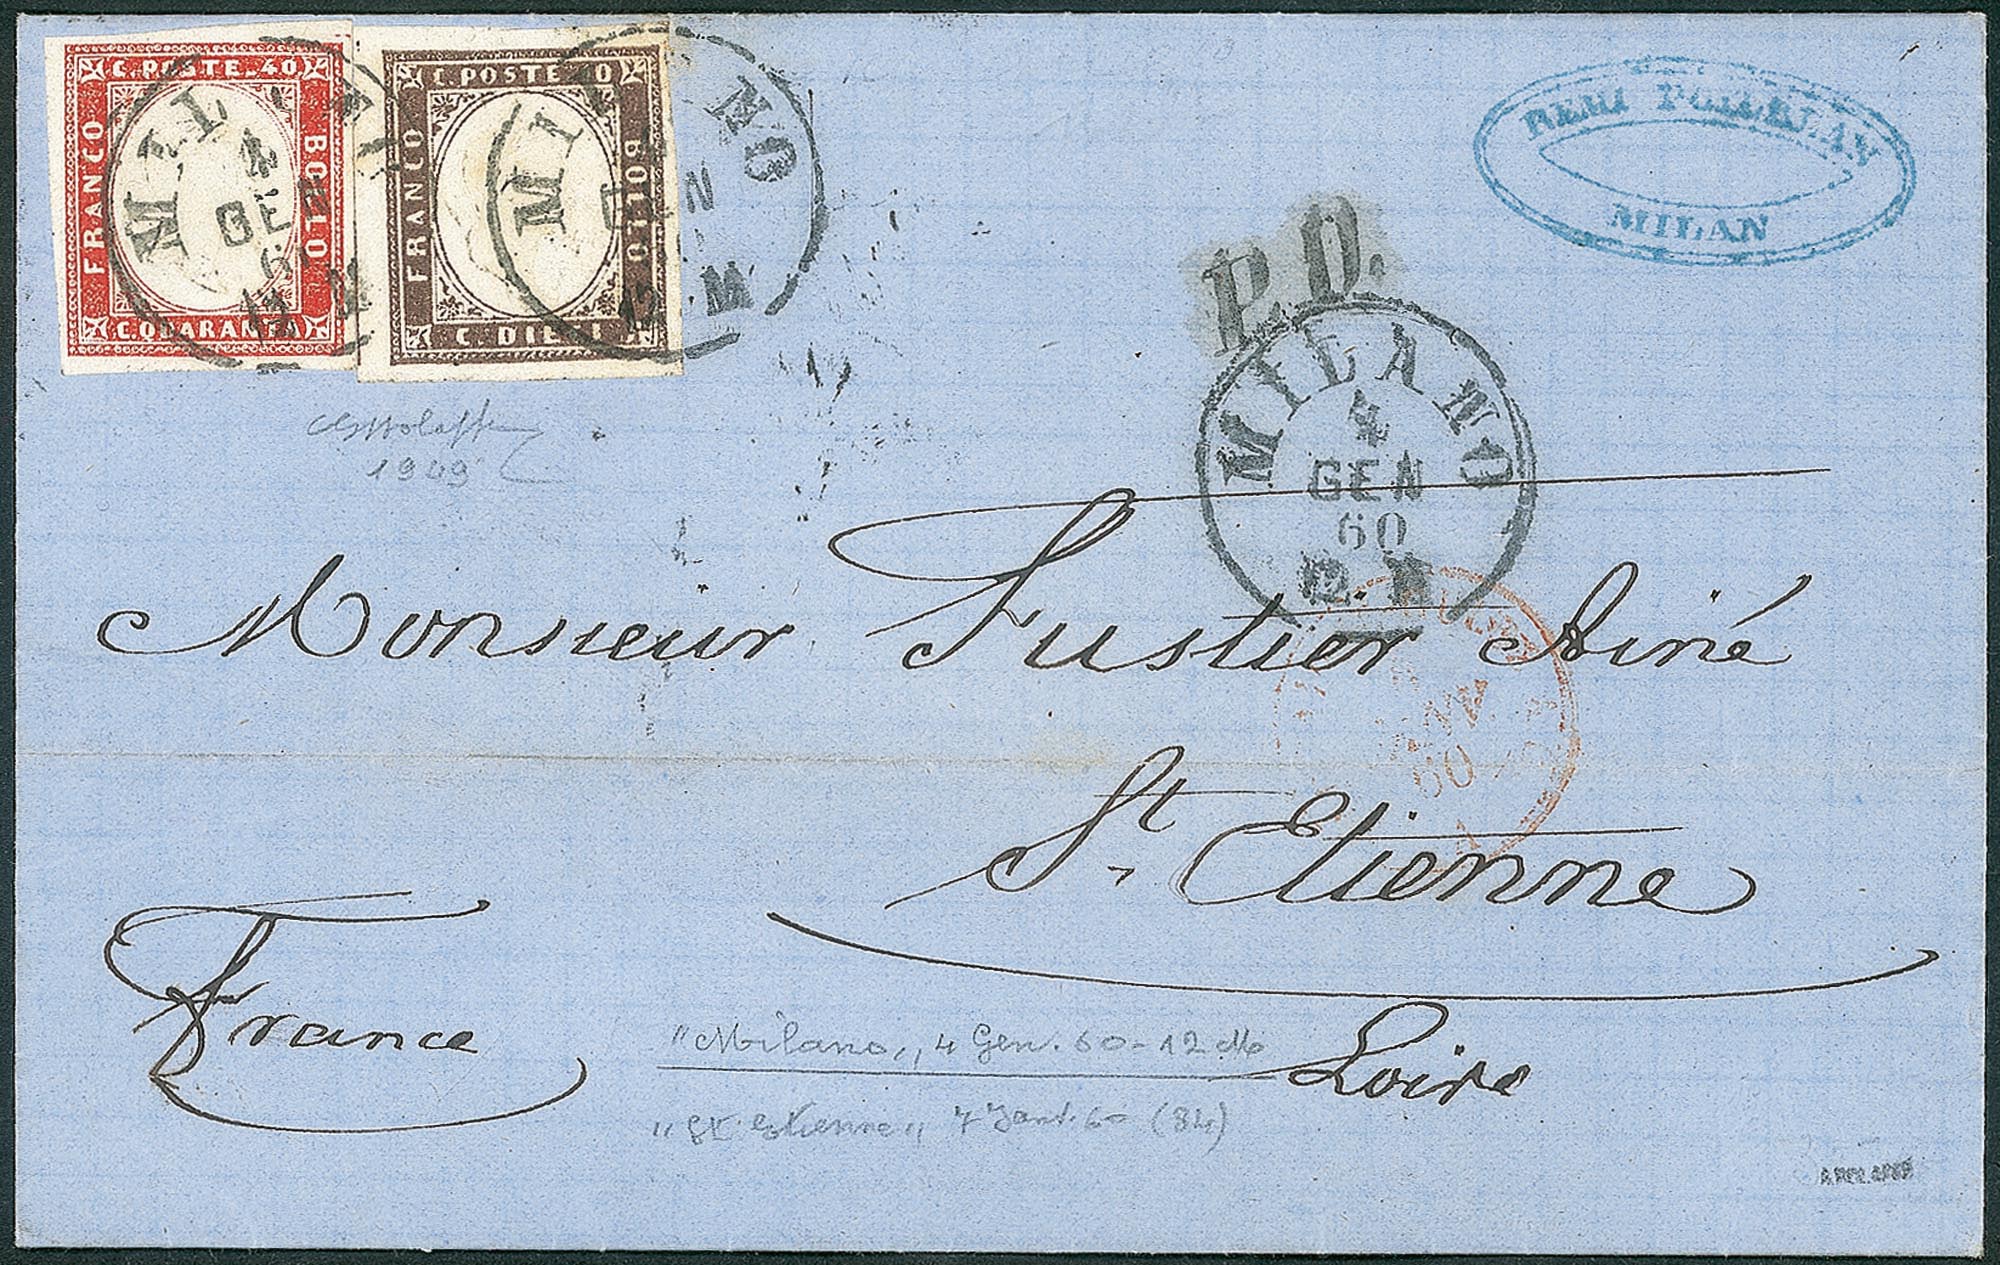 C. POSTE. 40
FRANCO
BOLLO
C. QUARANTA
C. POSTE 10
FRANCO
BOLLO
C. DIECI
MILANO
4
GEN
60
12. M
MILANO
GEN
12. M
REMI
MILAN
P.D.
MILANO
4
GEN
60
12. M
1909
Monsieur Fustier Ainé
JANV.
60
St. Etienne
Loire
France
"Milano„ 4 Gen. 60 - 12 M
"St Etienne„ 7 Janv. 60 (84)